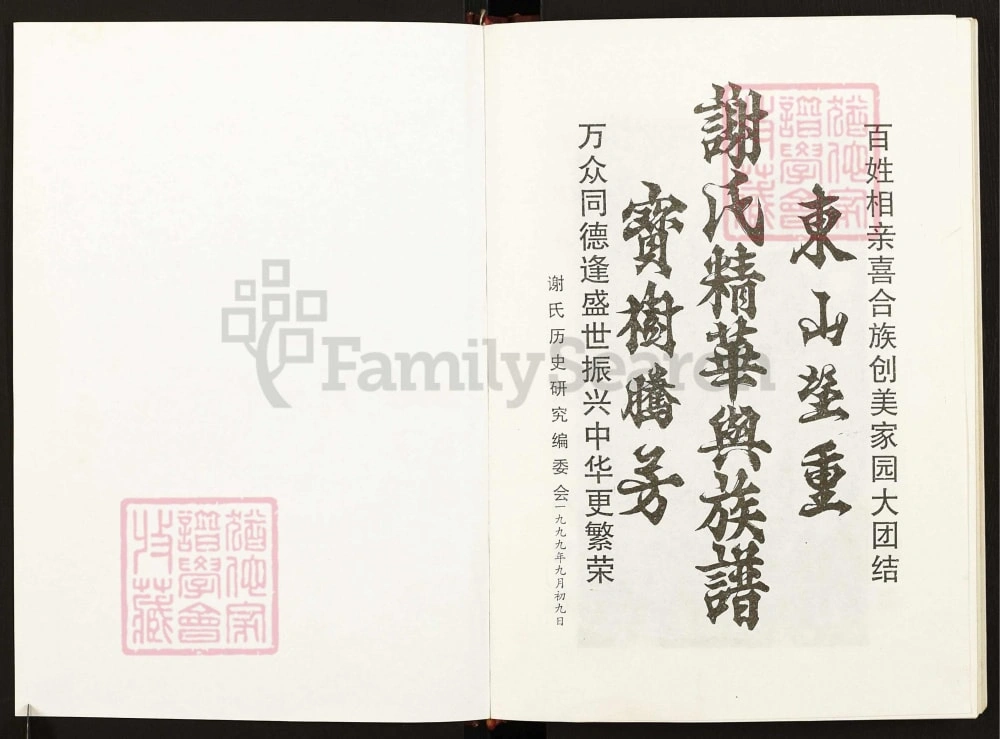 百姓相亲喜合族创美家园大团结
東山望重
謝氏精華與族譜
寳樹騰芳
万众同德逢盛世振兴中华更繁荣
谢氏历史研究编委会一九九九年九月初九日
猶他家
譜學會
收藏
猶他家
譜學會
收藏
FamilySearch